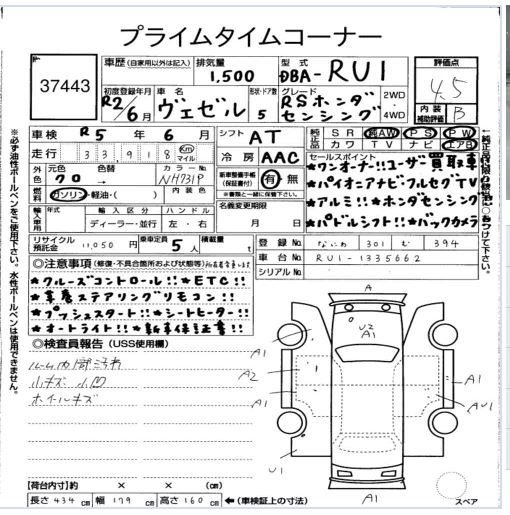 プライムタイムコーナー
37443
車歴 (自家用以外は記入)
排気量 1,500
型式 DBA-RU1
評価点 4.5
初度登録年月 R2/6月
車名 ヴェゼル
形状・ドア数 5
グレード RSホンダセンシング
2WD・4WD
内装補助評価 B
車検 R5年6月
シフト AT
純正品 SR 純AW PS PW
カワ TV ナビ エアB
走行 33,918 Km マイル
冷房 AAC
セールスポイント
★ワンオーナー!!ユーザー買取車
★パイオニアナビ・フルセグTV
★アルミ!!★ホンダセンシング
★パドルシフト!!★バックカメラ
外装色 元色 クロ 色替
カラーNo. NH731P
内装色
燃料 ガソリン・軽油・( )
新車整備手帳(保証書付) 有 無
※書類と一緒に保管下さい。
輸入車用 年式 輸入区分 ハンドル
ディーラー・並行 左・右
名義変更期限 月 日
リサイクル預託金 11,050円
乗車定員 5人
積載量 t
登録No. なにわ 301 む 394
車台No. RU1-1335662
シリアルNo.
◎注意事項 (修復・不具合箇所および状態等)
★クルーズコントロール!!★ETC!!
★革巻ステアリングリモコン!!
★プッシュスタート!!★シートヒーター!!
★オートライト!!★新車保証書!!
◎検査員報告 (USS使用欄)
ルーム内部汚れ
小キズ 小凹
ホイルキズ
A
U2
A1
A1
A1
A2
A1
A1
AU1
U1
A1
スペア
【荷台内寸】約 × × (cm)
長さ 434 cm 幅 179 cm 高さ 160 cm ←(車検証上の寸法)
※必ず油性ボールペンをご使用下さい。水性ボールペンは使用できません。